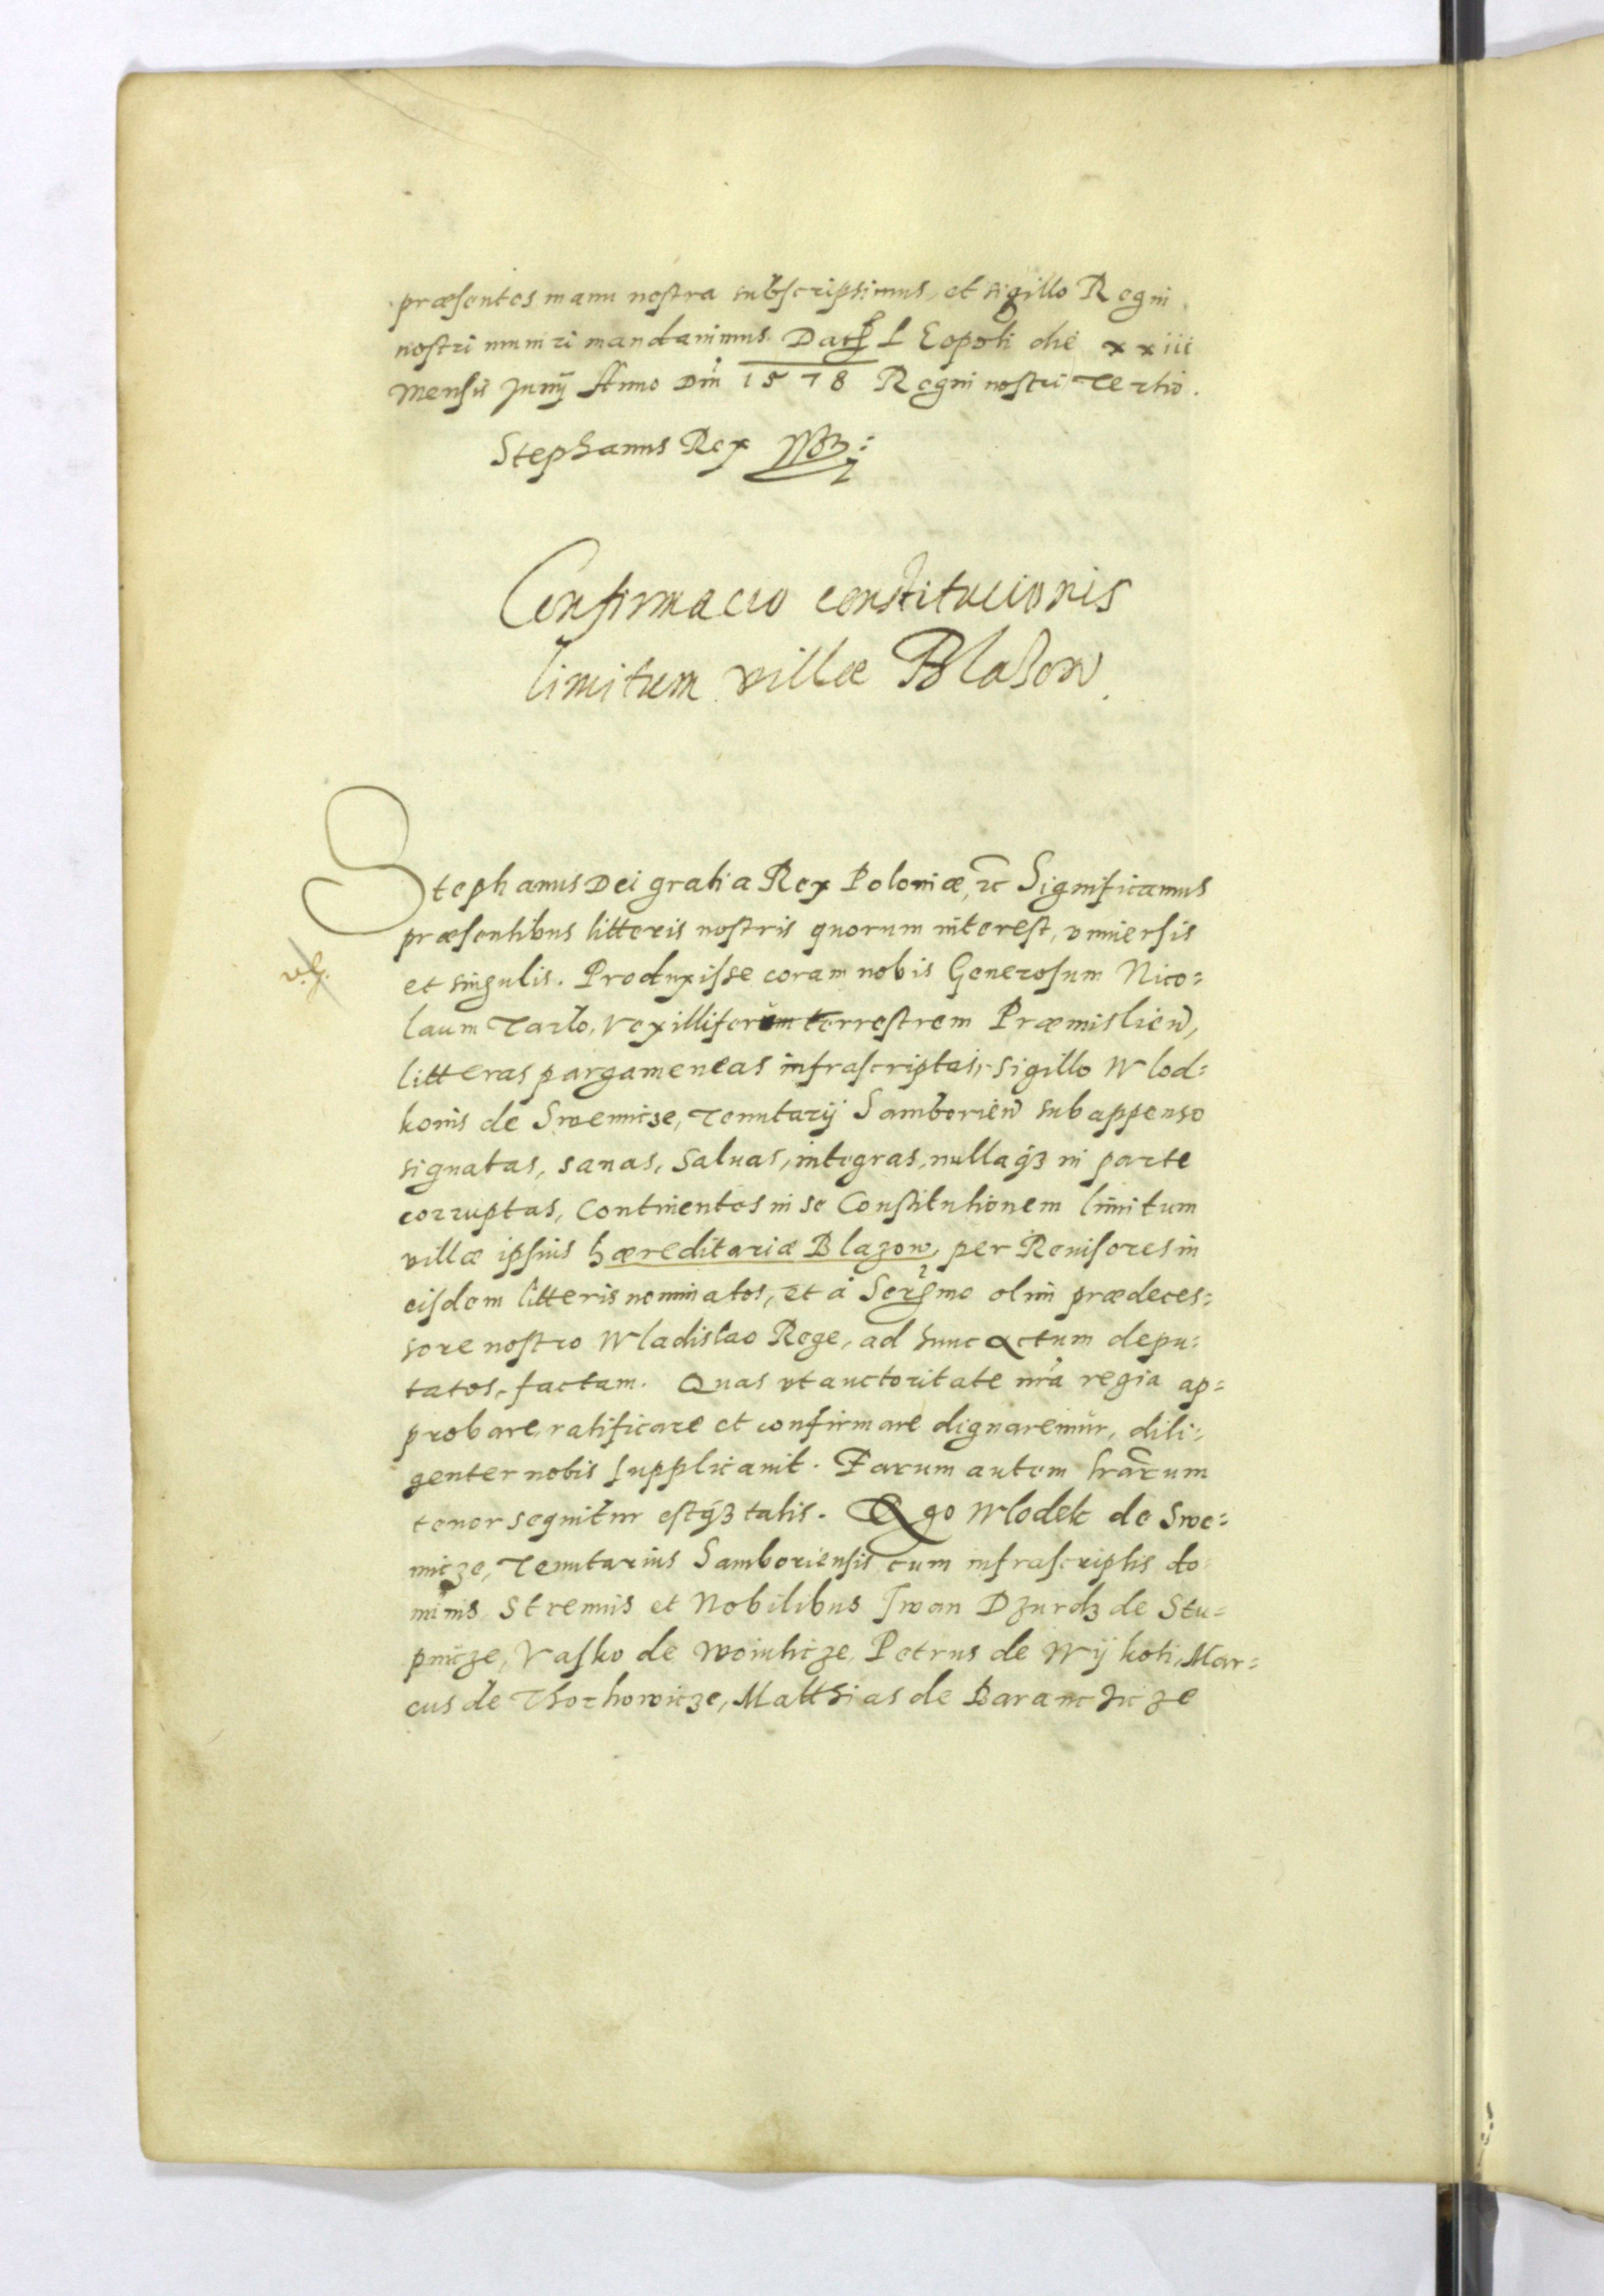 præsentes manu nostra subscripsimus, et sigillo Regni
nostri muniri mandavimus. Dat LEopoli die xxiii
mensis Junij Anno Dni 1578 Regni nostri Tertio.
Stephanus Rex
Confirmacio constitucionis
limitum villæ Blason.
Stephanus Dei gratia Rex Poloniæ, etc Significamus
præsentibus litteris nostris quorum interest, vniuersis
et singulis. Produxisse coram nobis Generosum Nico=
laum Tarlo, Vexilliferum terrestrem Præmislien,
litteras pargameneas infrascriptas, sigillo Wlod=
konis de Swemicze, Tenutarij Samborien subappenso
signatas, sanas, saluas, integras, nullaq3 in parte
corruptas, Continentes in se Constitutionem limitum
villæ ipsius hæreditariæ Blazow, per Reuisores in
eisdem litteris nominatos, et à Sermo olim prædeces=
sore nostro Wladislao Rege, ad hunc actum depu=
tatos, factam. Quas vt auctoritate nra regia ap=
probare, ratificare et confirmare dignaremur, dili=
genter nobis supplicauit. Earum autem lrarum
tenor sequitur estq3 talis. Ego Wlodek de Swe=
micze, Tenutarius Samboriensis cum infrascriptis do=
minis Strenuis et Nobilibus Iwan Dzurdz de Stu=
pnicze, Vasko de Woiuticze, Petrus de Wijkoti, Mar=
cus de Thorhowicze, Matthias de Baranczicze